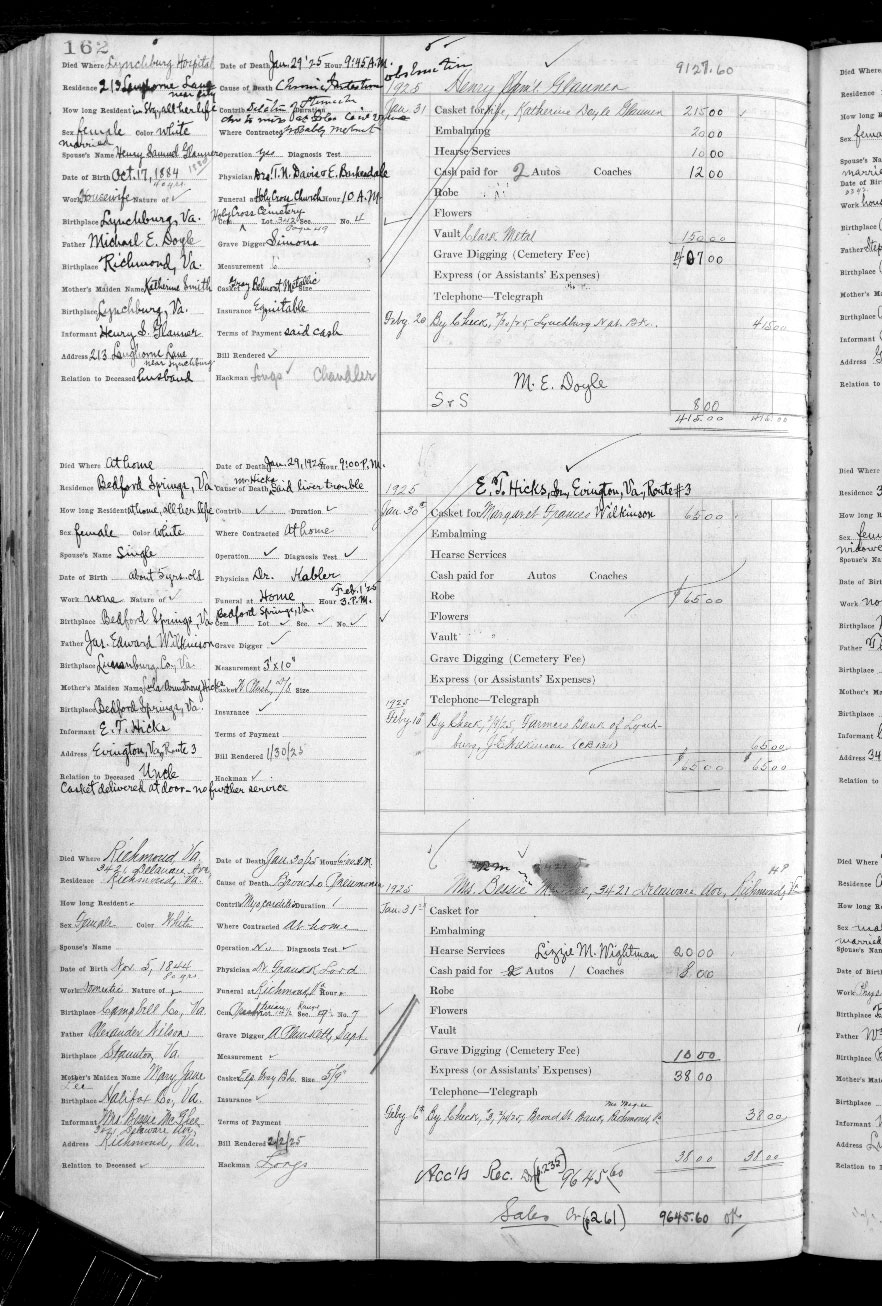 162
Died Where Lynchburg Hospital
Residence 213 Langhorne Lane
near city
How long Resident in Sky, all her life
Sex female Color White
married
Spouse's Name Henry Samuel Glauner
Date of Birth Oct. 17, 1884
40 yrs
Work Housewife Nature of ✓
Birthplace Lynchburg, Va.
Father Michael E. Doyle
Birthplace Richmond, Va.
Mother's Maiden Name Katherine Smith
Birthplace Lynchburg, Va.
Informant Henry S. Glauner
Address 213 Langhorne Lane
near Lynchburg
Relation to Deceased husband
Date of Death Jan. 29 '25 Hour 9:45 A.M.
Cause of Death Chronic Intestinal
obstruction
Contrib Dilation of Stomach Duration
Where Contracted Probably met out
Operation yes Diagnosis Test
Physician Drs. T. N. Davis & E. Barksdale
Funeral at Holy Cross Church Hour 10 A.M.
Holy Cross Cemetery
Cem Lot 342 Sec. No. 4
Page 49
Grave Digger Simons
Measurement 6 3
Casket Gray Belmont Metallic Size
Insurance Equitable
Terms of Payment said cash
Bill Rendered ✓
Hackman Longs ✓ Chandler
9127.60
1925 Henry Sam'l Glauner
Jan. 31 Casket for wife, Katherine Doyle Glauner 215 00
Embalming 20 00
Hearse Services 10 00
Cash paid for 2 Autos Coaches 12 00
Robe
Flowers
Vault Clark Metal 150 00
Grave Digging (Cemetery Fee) 407 00
Express (or Assistants' Expenses)
Telephone—Telegraph
Feby 20 By Check, 2/20/25 Lynchburg Nat. Bk. 415 00
M. E. Doyle
S & S 8 00
415.00 415.00
Died Where At home
Residence Bedford Springs, Va.
How long Resident at home, all her life
Sex female Color White
Spouse's Name Single
Date of Birth about 5 yrs. old
Work none Nature of ✓
Birthplace Bedford Springs, Va.
Father Jas. Edward Wilkinson
Birthplace Lunenburg Co., Va.
Mother's Maiden Name Lula Armstrong Hicks
Birthplace Bedford Springs, Va.
Informant E. T. Hicks
Address Evington, Va., Route 3
Relation to Deceased Uncle
Casket delivered at door – no further service
Date of Death Jan. 29, 1925 Hour 9:00 P.M.
Mr Hicks
Cause of Death said liver trouble
Contrib ✓ Duration ✓
Where Contracted At home
Operation ✓ Diagnosis Test ✓
Physician Dr. Kabler
Feb. 1 '25
Funeral at Home Hour 3. P.M.
Bedford Springs, Va.
Cem Lot ✓ Sec. ✓ No. ✓
Grave Digger ✓
Measurement 3'x10"
Casket W Plush, Size
Insurance ✓
Terms of Payment
Bill Rendered 1/30/25
Hackman ✓
1925 E. T. Hicks, Evington, Va., Route #3
Jan. 30th Casket for Margaret Frances Wilkinson 65 00
Embalming
Hearse Services
Cash paid for Autos Coaches
Robe $65 00
Flowers
Vault " "
Grave Digging (Cemetery Fee)
Express (or Assistants' Expenses)
Telephone—Telegraph
1925
Feby 10th By Check, 2/9/25 Farmers Bank of Lunen-
burg, J E Wilkinson 65 00
$65 00 $65 00
Died Where Richmond Va.
3421 Delaware Ave.
Residence Richmond, Va.
How long Resident
Sex Female Color White
Spouse's Name
Date of Birth Nov 5, 1844
80 yrs
Work Domestic Nature of
Birthplace Campbell Co, Va.
Father Alexander Wilson
Birthplace Staunton Va.
Mother's Maiden Name Mary Jane
Lee
Birthplace Halifax Co, Va.
Informant Mrs Bessie McGhee
3421 Delaware Ave,
Address Richmond, Va.
Relation to Deceased ✓
Date of Death Jan 30/25 Hour
Cause of Death Broncho Pneumonia
Contrib Myocarditis Duration
Where Contracted At home
Operation No Diagnosis Test ✓
Physician Dr Lord
Funeral at Richmond Va Hour
Cem Lot Sec. 9 No. 7
Grave Digger A Plunkett, Supt
Measurement ✓
Casket Gray Size 5/9"
Insurance ✓
Terms of Payment
Bill Rendered 2/2/25
Hackman Longs
H P
1925 Mrs. Bessie 3421 Delaware Ave, Richmond, Va
Jan. 31st Casket for
Embalming
Hearse Services Lizzie M. Wightman 20 00
Cash paid for 2 Autos 1 Coaches 8 00
Robe
Flowers
Vault
Grave Digging (Cemetery Fee) 10 00
Express (or Assistants' Expenses) 38 00
Telephone—Telegraph
Feby 6th By Check, #3, 2/4/25, Broad St. Bank, Richmond Va 38 00
38 00 38 00
Acc'ts Rec. Dr (p.235) 9645 60
Sales Cr (p261) 9645.60 OK